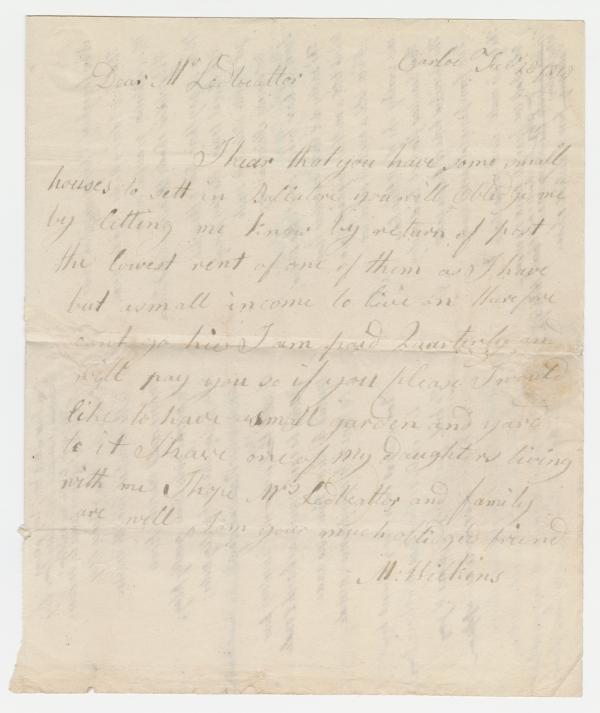 Carlow Feb
Dear Mr Ledbeatter
I hear that you have some small
houses to sett in Ballatore you will oblidge me
by letting me know by return of post
the lowest rent of one of them as I have
but a small income to live on therefore
cant go hier I am paid Quarterly an
will pay you so if you please I would
like to have a small garden and yard
to it I have one of my daughters living
with me I hope Mrs Ledbeatter and family
are well I am your much obliged friend
M: Wilkins